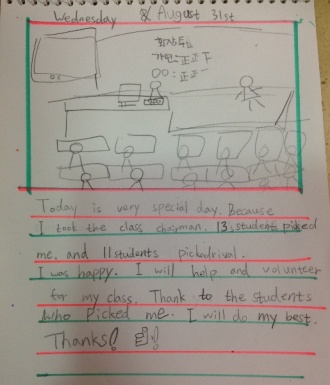 Wednesday & August 31st
회장투표
가현: 正正下
○○: 正正一
Today is very special day. Because
I took the class chairman. 13 students picked
me, and 11 students picked rival.
I was happy. I will help and volunteer
for my class. Thank to the students
who Picked me. I will do my best.
Thanks!